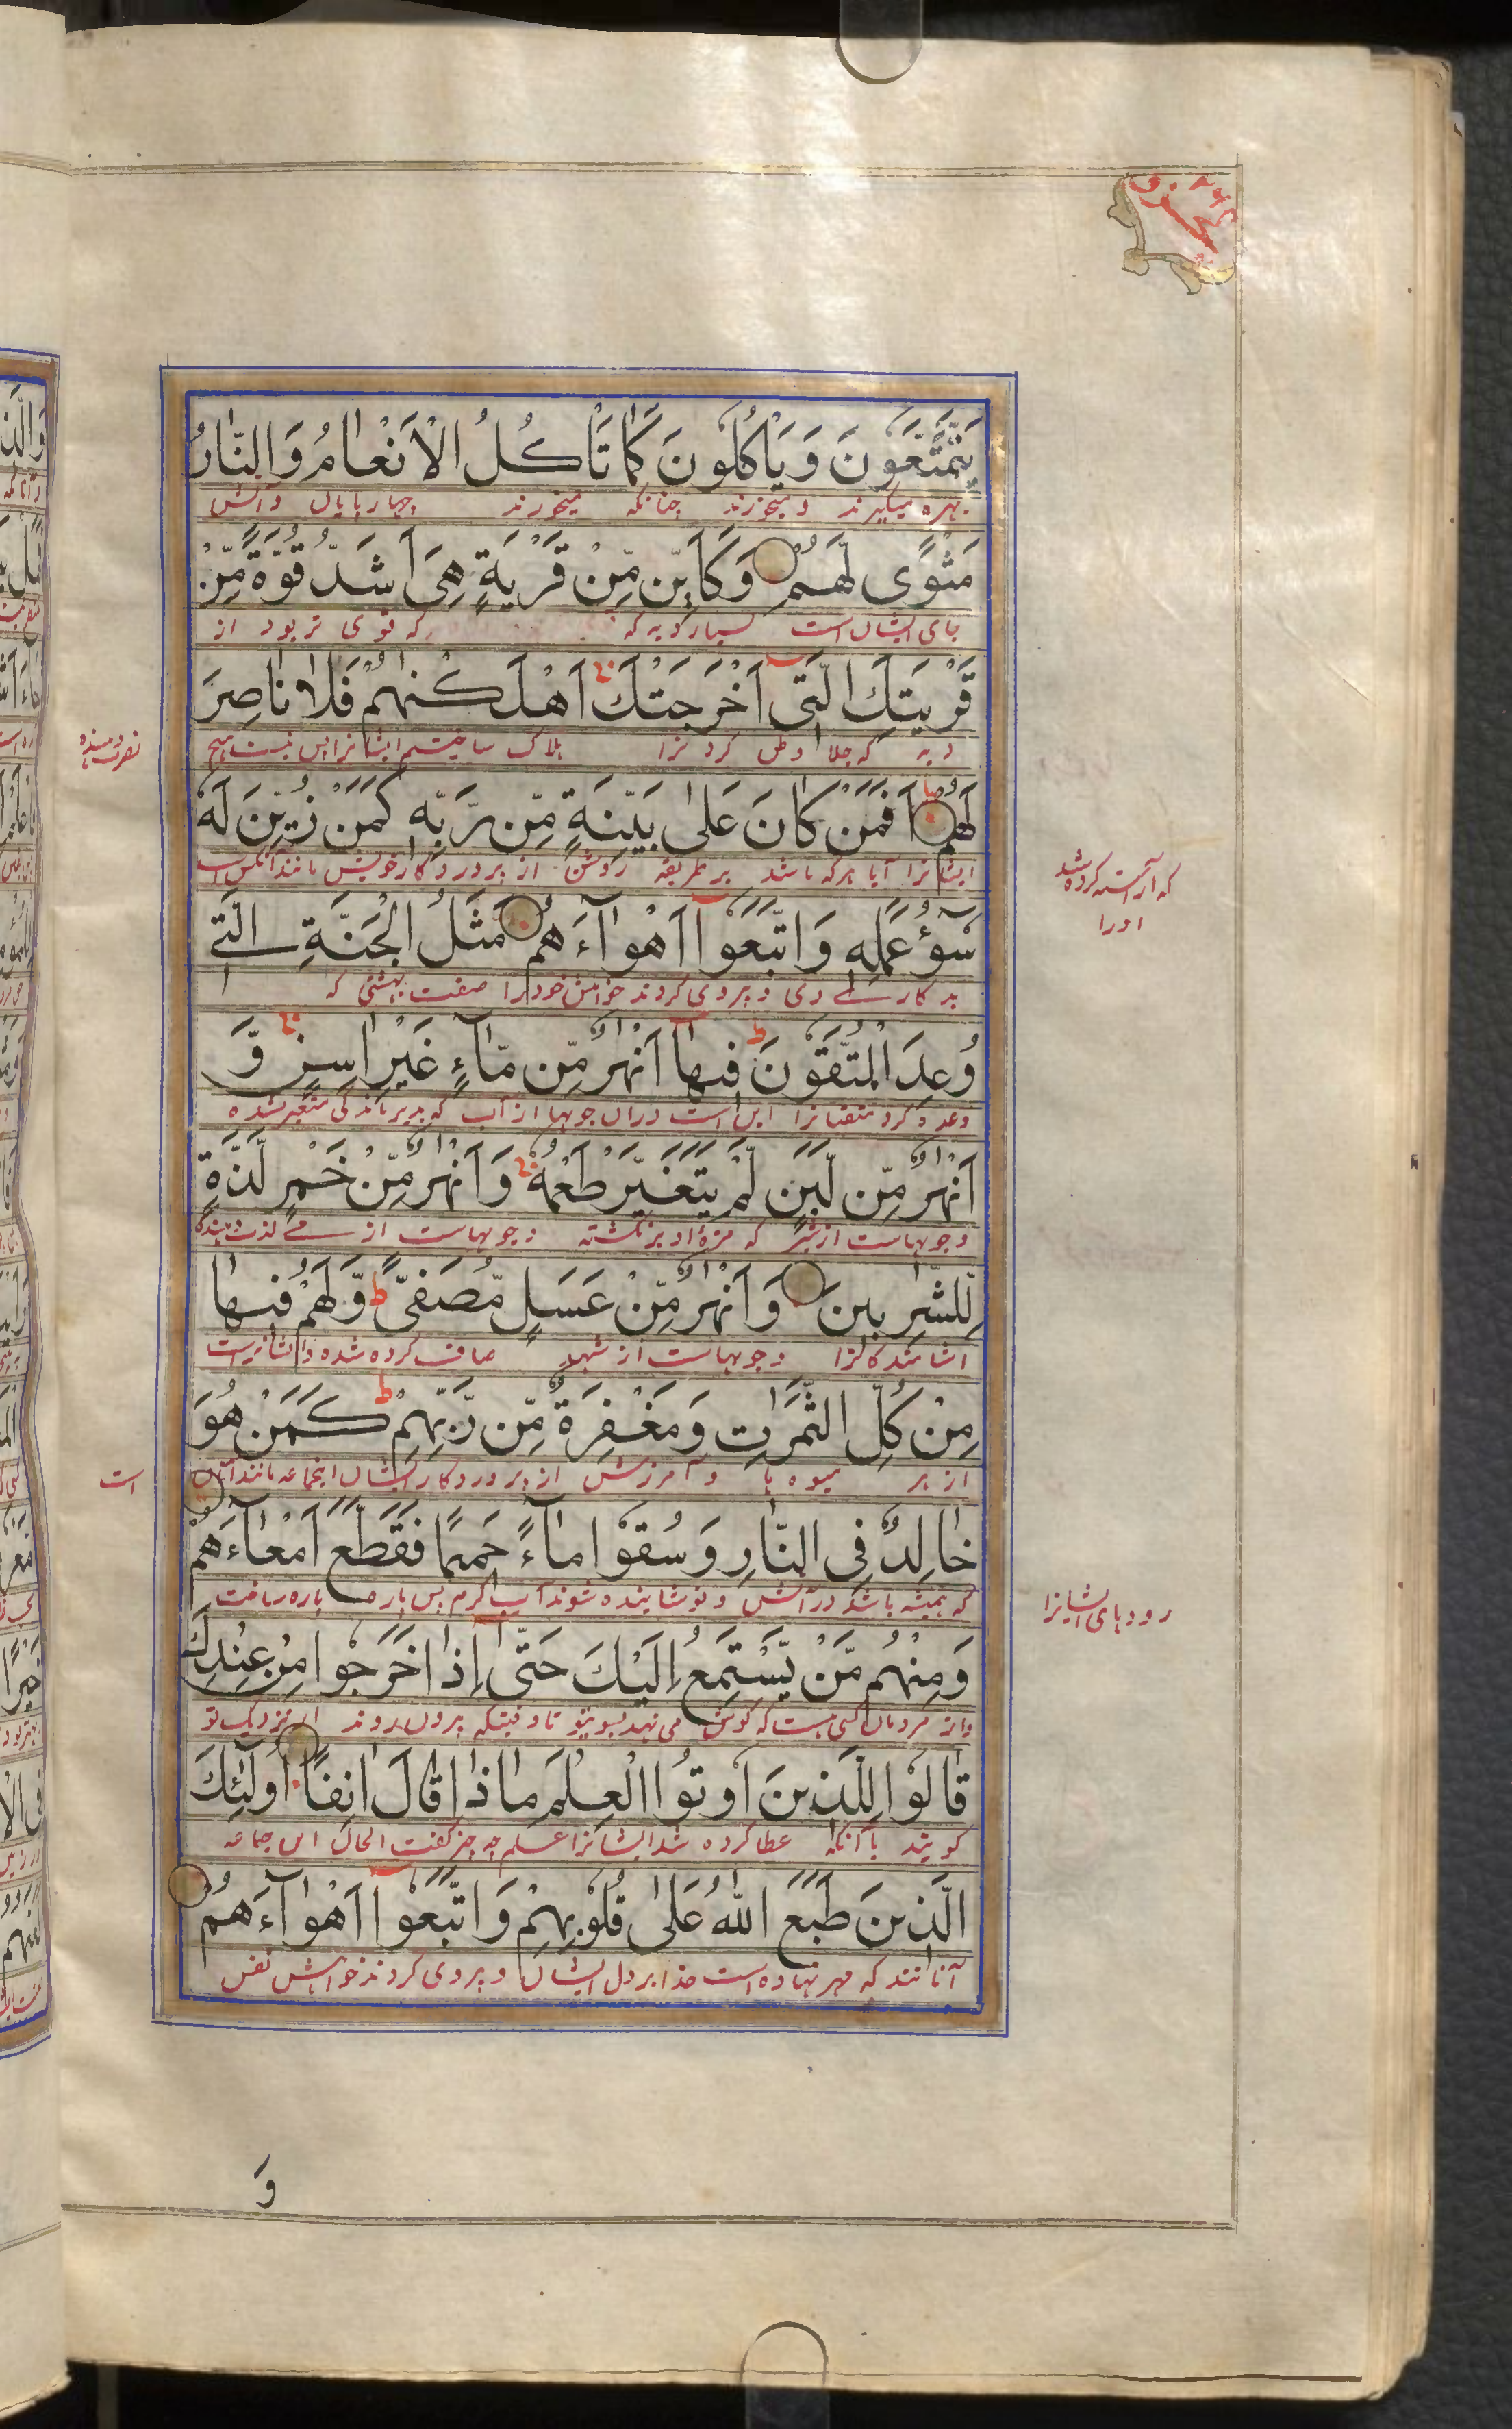 یَتَمَتَّعُوْنَ وَ یَاْكُلُوْنَ كَمَا تَاْكُلُ الْاَنْعَامُ وَالنَّارُ
بهره میگیرند و میخورند چنانکه میخورند چهارپایان و آتش
مَثْوًى لَّهُمْ وَكَاَیِّنْ مِّنْ قَرْیَةٍ هِیَ اَشَدُّ قُوَّةً مِّنْ
جای ایشان است بسیار دیه که که قوی تر بود از
قَرْیَتِكَ الَّتِیْ اَخْرَجَتْكَ اَهْلَكْنٰهُمْ فَلَا نَاصِرَ
دیه که جلا وطن کرد ترا هلاک ساختیم ایشانرا پس نیست هیچ
نصرت دهنده
لَهُمْ اَفَمَنْ كَانَ عَلٰى بَیِّنَةٍ مِّنْ رَّبِّهٖ كَمَنْ زُیِّنَ لَهٗ
ایشانرا آیا هرکه باشد بر طریقه روشن از پروردگار خویش مانند آنکس است
که آراسته کرده شد
اورا
سُوْٓءُ عَمَلِهٖ وَاتَّبَعُوْٓا اَهْوَآءَهُمْ مَثَلُ الْجَنَّةِ الَّتِیْ
بد کارے وی و پیروی کردند خواهش خود را صفت بهشتی که
وُعِدَ الْمُتَّقُوْنَ ط فِیْهَآ اَنْهٰرٌ مِّنْ مَّآءٍ غَیْرِ اٰسِنٍ وَّ
وعده کرد متقیانرا این است دران جویها از آب که بدیر ماندگی متغیر نشده
اَنْهٰرٌ مِّنْ لَّبَنٍ لَّمْ یَتَغَیَّرْ طَعْمُهٗ وَ اَنْهٰرٌ مِّنْ خَمْرٍ لَّذَّةٍ
و جویهاست از شیر که مزهٔ او برنگشته و جویهاست از مے لذت دهنده
لِّلشّٰرِبِیْنَ وَ اَنْهٰرٌ مِّنْ عَسَلٍ مُّصَفًّى ط وَّلَهُمْ فِیْهَا
آشامندگانرا و جویهاست از شهد صاف کرده شده و ایشانراست
مِنْ كُلِّ الثَّمَرٰتِ وَمَغْفِرَةٌ مِّنْ رَّبِّهِمْ ط كَمَنْ هُوَ
از هر میوه ها و آمرزش از پروردگار ایشان اینجماعه مانند آنان
است
خَالِدٌ فِی النَّارِ وَسُقُوْا مَآءً حَمِیْمًا فَقَطَّعَ اَمْعَآءَهُمْ
که همیشه باشد در آتش و نوشانیده شوند آب گرم پس پاره پاره ساخت
رودهای ایشانرا
وَمِنْهُمْ مَّنْ یَّسْتَمِعُ اِلَیْكَ حَتّٰٓى اِذَا خَرَجُوْا مِنْ عِنْدِكَ
واز مردمان کسی هست که گوش می نهد بسوی تو تا وقتیکه برون روند از نزدیک تو
قَالُوْا لِلَّذِیْنَ اُوْتُوا الْعِلْمَ مَاذَا قَالَ اٰنِفًا اُولٰٓئِكَ
گویند بآنکه عطا کرده شد ایشانرا علم چه چیز گفت الحال این جماعه
الَّذِیْنَ طَبَعَ اللّٰهُ عَلٰى قُلُوْبِهِمْ وَاتَّبَعُوْٓا اَهْوَآءَهُمْ
آنانند که مهر نهاده است خدا بر دل ایشان و پیروی کردند خواهش نفس
وَ